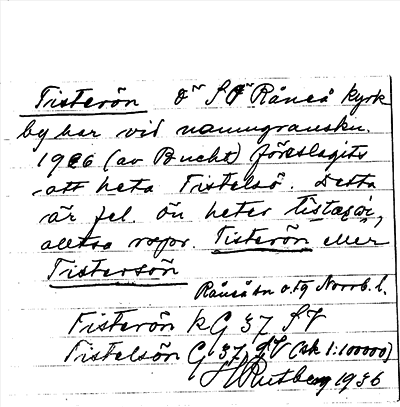 Tisterön Ö SÖ Råneå kyrk
by har vid namngranskn.
1926 (av Bucht) föreslagits
att heta Tistelsö. Detta
är fel. Ön heter
alltså Tisterön eller
Tistersön
Råneå sn o. tg Norrb. l.
Tisterön kG 37 SV
Tistelsön G 37, SV (sk 1:100000)
Rutberg 1936